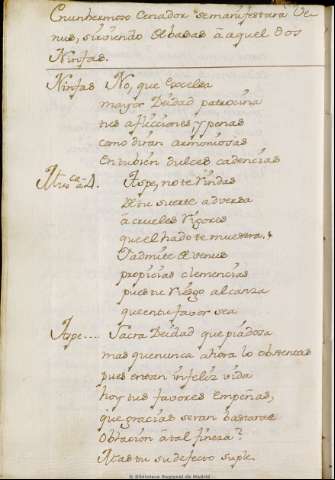 En un hermoso Cenador se manifestará Ve-
nus, sirviendo de basas à aquel dos
Ninfas.
Ninfas No, que Excelsa
mayor Deidad patrocina
tus aflicciones y penas
como dirán armoniosas
en tubién dulces cadencias
Aspe, no te rindas
de tu suerte adversa
à crueles rigores
que el hado te muestra,
y admite de Venus
propicias clemencias
pues tu ruego alcanza
que en tu favor sea
Aspe.... Sacra Deidad que piadosa
mas que nunca ahora lo obstentas
pues en tan infeliz vida
hoy tus favores empeñas,
que gracias seran bastante
obracion à tal fineza?
Mas tu su defecto suple.
© Biblioteca Regional de Madrid